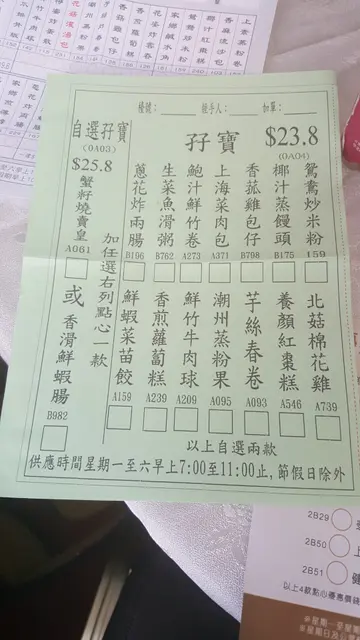 檯號：
經手人：
加單：
孖寶
$23.8
(0A04)
鴛鴦炒米粉
159
椰汁蒸饅頭
B175
香菰雞包仔
B798
上海菜肉包
A371
鮑汁鮮竹卷
A273
生菜魚滑粥
B762
蔥花炸兩腸
B196
北菇棉花雞
A739
養顏紅棗糕
A546
芋絲春卷
A093
潮州蒸粉果
A095
鮮竹牛肉球
A209
香煎蘿蔔糕
A239
鮮蝦菜苗餃
A159
以上自選兩款
自選孖寶
(0A03)
$25.8
蟹籽燒賣皇
A061
或
香滑鮮蝦腸
B982
加任選右列點心一款
供應時間星期一至六早上7:00至11:00止,節假日除外
上素蒸粉卷
香麻流沙包
椰汁紅糰糕
鴛鴦炒米粉
家鄉鹹水角
蜜花炸雲吞
香菇雞包仔
2B29
2B50
2B51
以上4款點心優惠價